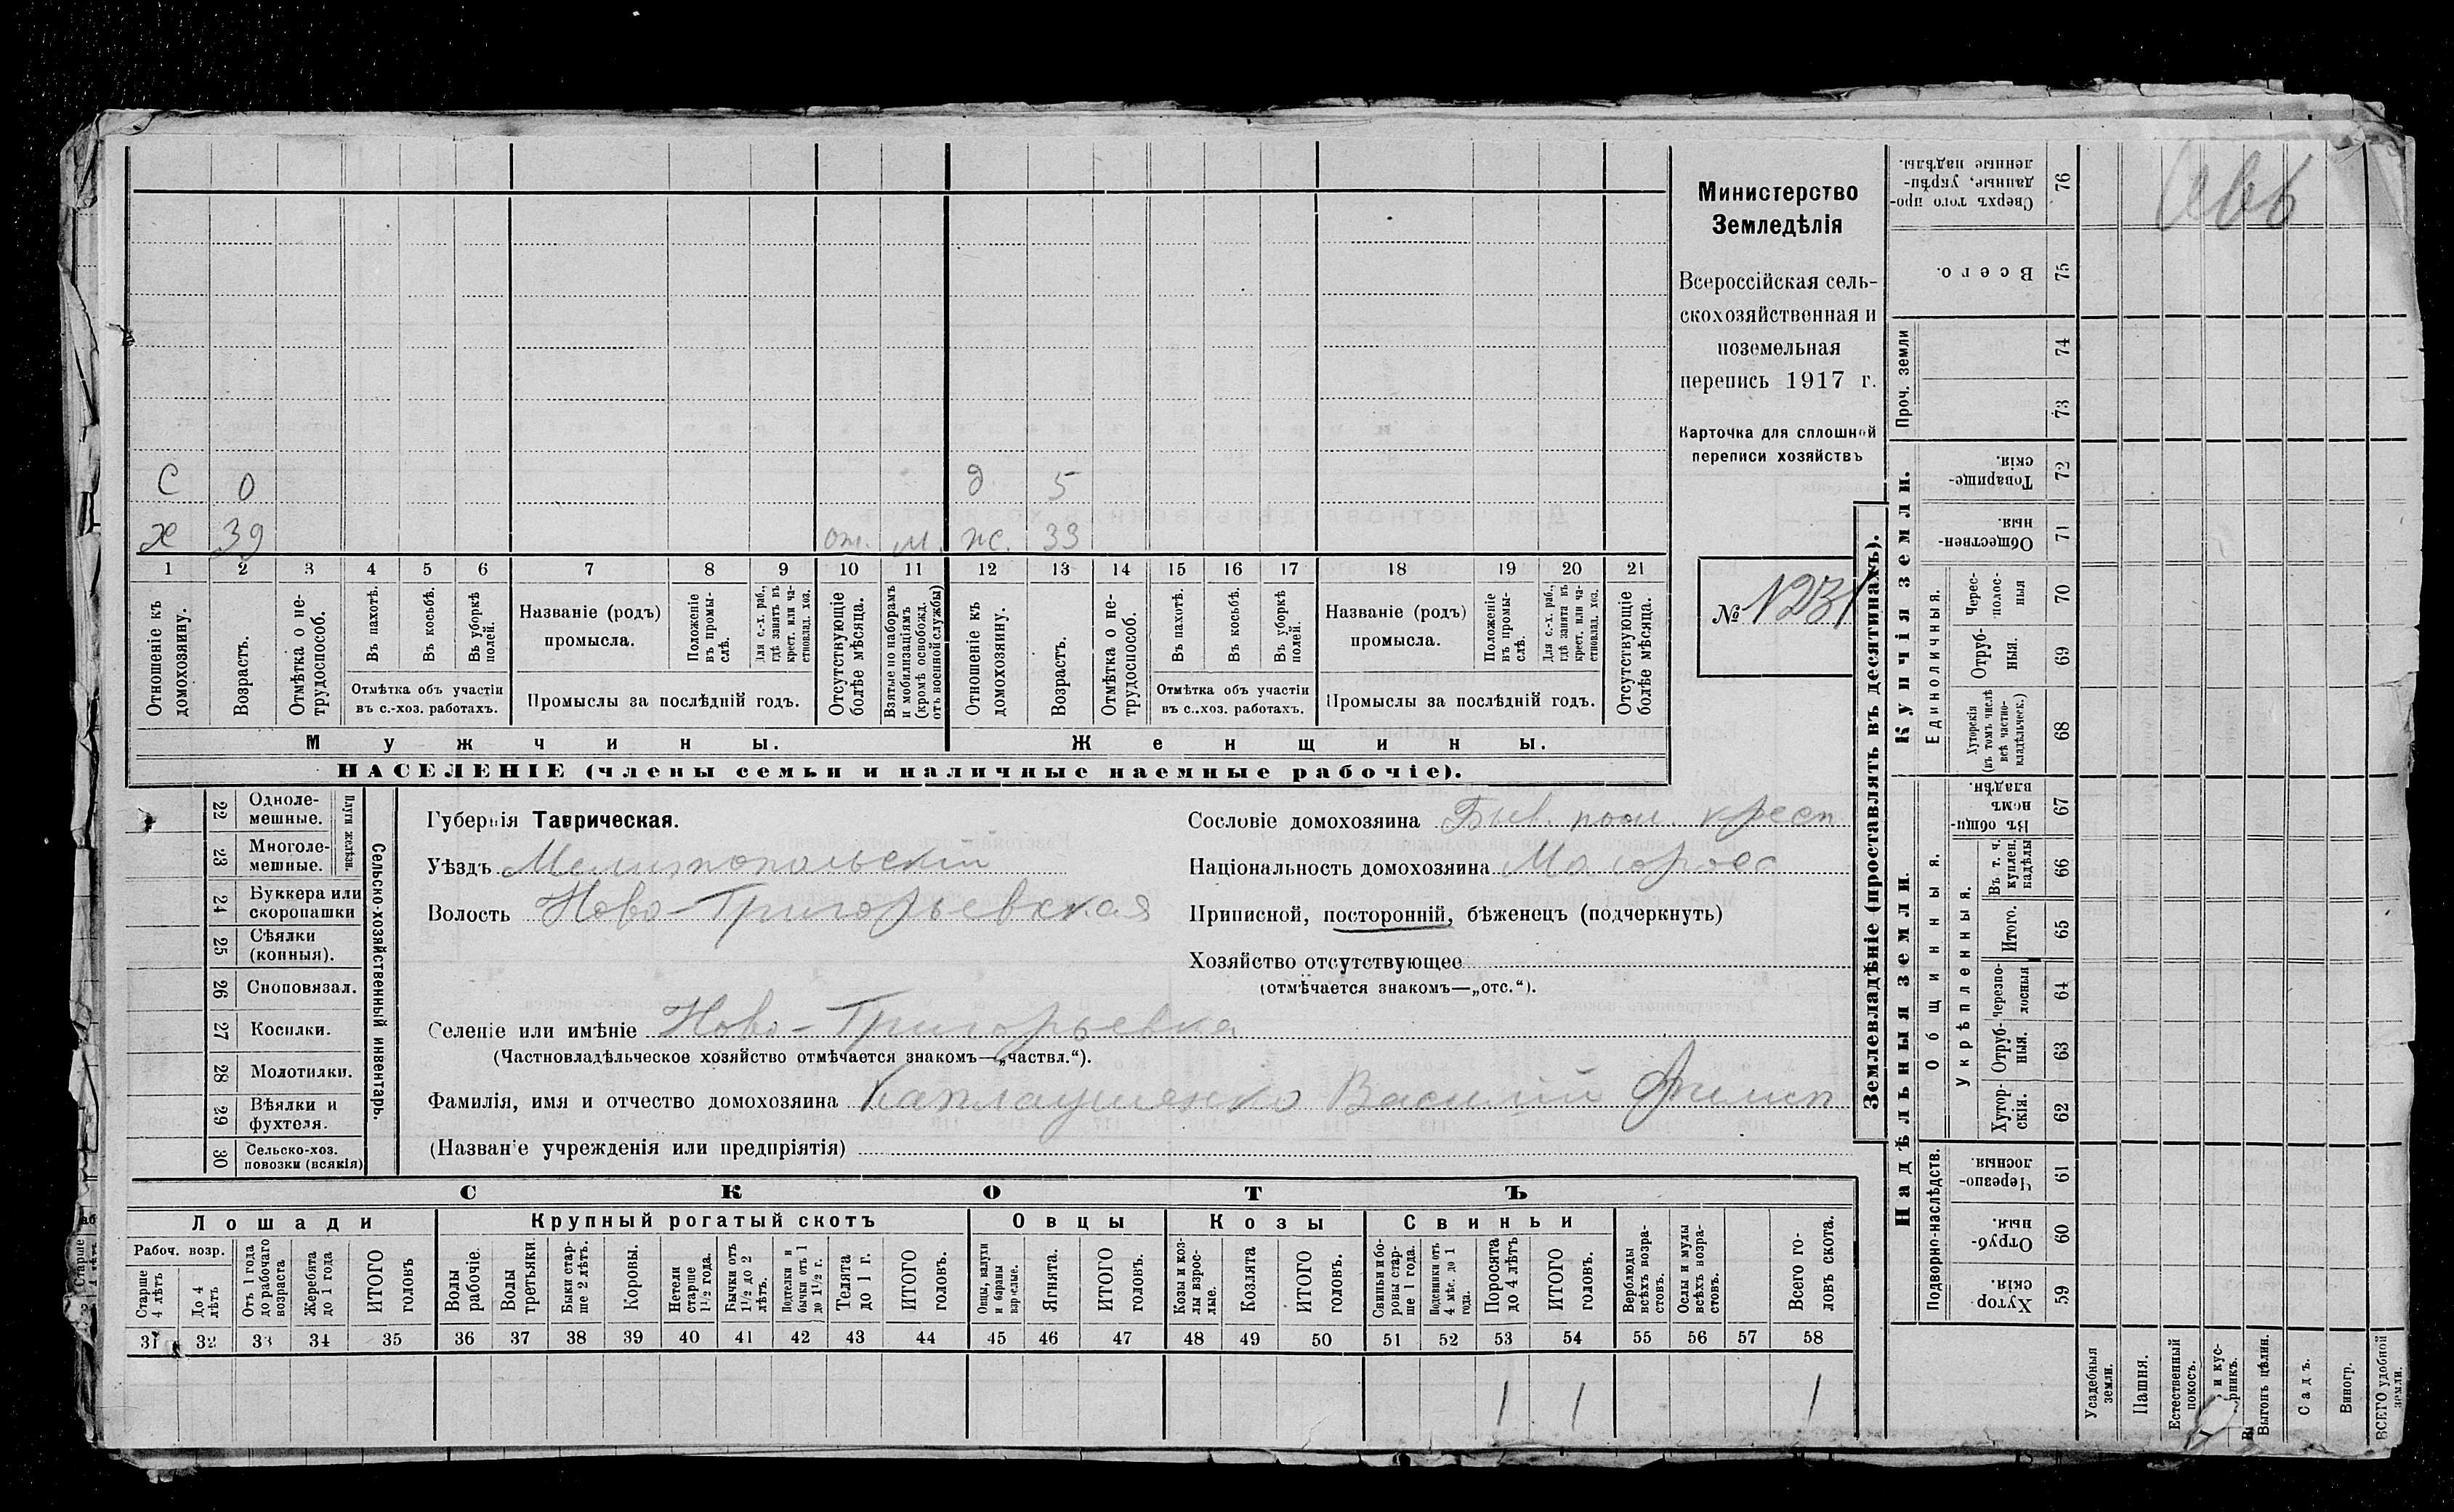 Министерство
Земледѣлія
Всероссійская сель-
скохозяйственная и
поземельная
перепись 1917 г.
Карточка для сплошной
переписи хозяйствъ
№ 1231
С 0 д 5
х 39 от. м. ж. 33
1 2 3 4 5 6 7 8 9 10 11 12 13 14 15 16 17 18 19 20 21
Отношеніе къ домохозяину.
Возрастъ.
Отмѣтка о не-трудоспособ.
Въ пахотѣ.
Въ косьбѣ.
Въ уборкѣ полей.
Отмѣтка объ участіи
въ с.-хоз. работахъ.
Названіе (родъ)
промысла.
Положеніе въ промы-слѣ.
Для с.-х. раб., гдѣ занятъ въ крест. или ча-стновлад. хоз.
Промыслы за послѣдній годъ.
Отсутствующіе болѣе мѣсяца.
Взятые по наборамъ и мобилизаціямъ (кромѣ освобожд. отъ военной службы)
Отношеніе къ домохозяину.
Возрастъ.
Отмѣтка о не-трудоспособ.
Въ пахотѣ.
Въ косьбѣ.
Въ уборкѣ полей.
Отмѣтка объ участіи
въ с..хоз. работахъ.
Названіе (родъ)
промысла.
Положеніе въ промы-слѣ.
Для с.-х. раб., гдѣ занята въ крест. или ча-стновлад. хоз.
Промыслы за послѣдній годъ.
Отсутствующіе болѣе мѣсяца.
Мужчины.
Женщины.
НАСЕЛЕНІЕ (члены семьи и наличные наемные рабочіе).
22 Одноле-мешные.
23 Многоле-мешные.
Плуги желѣзн.
24 Буккера или скоропашки
25 Сѣялки (конныя).
26 Сноповязал.
27 Косилки.
28 Молотилки.
29 Вѣялки и фухтеля.
30 Сельско-хоз. повозки (всякія)
Сельско-хозяйственный инвентарь.
Губернія Таврическая.
Уѣздъ Мелитопольскій
Волость Ново-Григорьевская
Сословіе домохозяина Быв. пос. крест
Національность домохозяина Малорос
Приписной, посторонній, бѣженецъ (подчеркнуть)
Хозяйство отсутствующее
(отмѣчается знакомъ—„отс.“).
Селеніе или имѣніе Ново-Григорьевка
(Частновладѣльческое хозяйство отмѣчается знакомъ—„частвл.“).
Фамилія, имя и отчество домохозяина Каплаушенко Василій Филип
(Названіе учрежденія или предпріятія)
СКОТЪ
Лошади
Крупный рогатый скотъ
Овцы
Козы
Свиньи
Рабоч. возр.
Старше 4 лѣтъ
До 4 лѣтъ
Отъ 1 года до рабочаго возраста
Жеребята до 1 года
ИТОГО головъ
Волы рабочіе.
Волы третьяки.
Быки стар-ше 2 лѣтъ.
Коровы.
Нетели старше 1½ года.
Бычки отъ 1½ до 2 лѣтъ.
Подтелки и бычки отъ 1 до 1½ г.
Телята до 1 г.
ИТОГО головъ.
Овцы, валухи и бараны взрослые.
Ягнята.
ИТОГО головъ.
Козы и коз-лы взрос-лые.
Козлята
ИТОГО головъ.
Свиньи и бо-ровы стар-ше 1 года.
Подсвинки отъ 4 мѣс. до 1 года.
Поросята до 4 лѣтъ
ИТОГО головъ.
Верблюды всѣхъ возра-стовъ.
Ослы и мулы всѣхъ возра-стовъ.
Всего го-ловъ скота.
31 32 33 34 35 36 37 38 39 40 41 42 43 44 45 46 47 48 49 50 51 52 53 54 55 56 57 58
1 1 1
Землевладѣніе (проставлять въ десятинахъ).
Купчія земли.
Надѣльныя земли.
Проч. земли
Единоличныя.
Общинныя.
Укрѣпленныя.
Подворно-наслѣдств.
76 Сверхъ того про-данные, укрѣп-ленные надѣлы.
75 Всего.
74
73
72 Товарище-скія.
71 Обществен-ныя.
70 Черес-полос-ныя
69 Отруб-ныя.
68 Хуторскія (въ томъ числѣ всѣ частно-владѣльческ.)
67 Въ общин-номъ владѣн.
66 Въ т. ч. куплен. надѣлы
65 Итого.
64 Черезпо-лосныя
63 Отруб-ныя.
62 Хутор-скія.
61 Черезпо-лосныя.
60 Отруб-ныя.
59 Хутор-скія.
Усадебныя земли.
Пашня.
Естественный покосъ.
Выгонъ цѣлин.
Садъ.
Виногр.
ВСЕГО удобной земли.